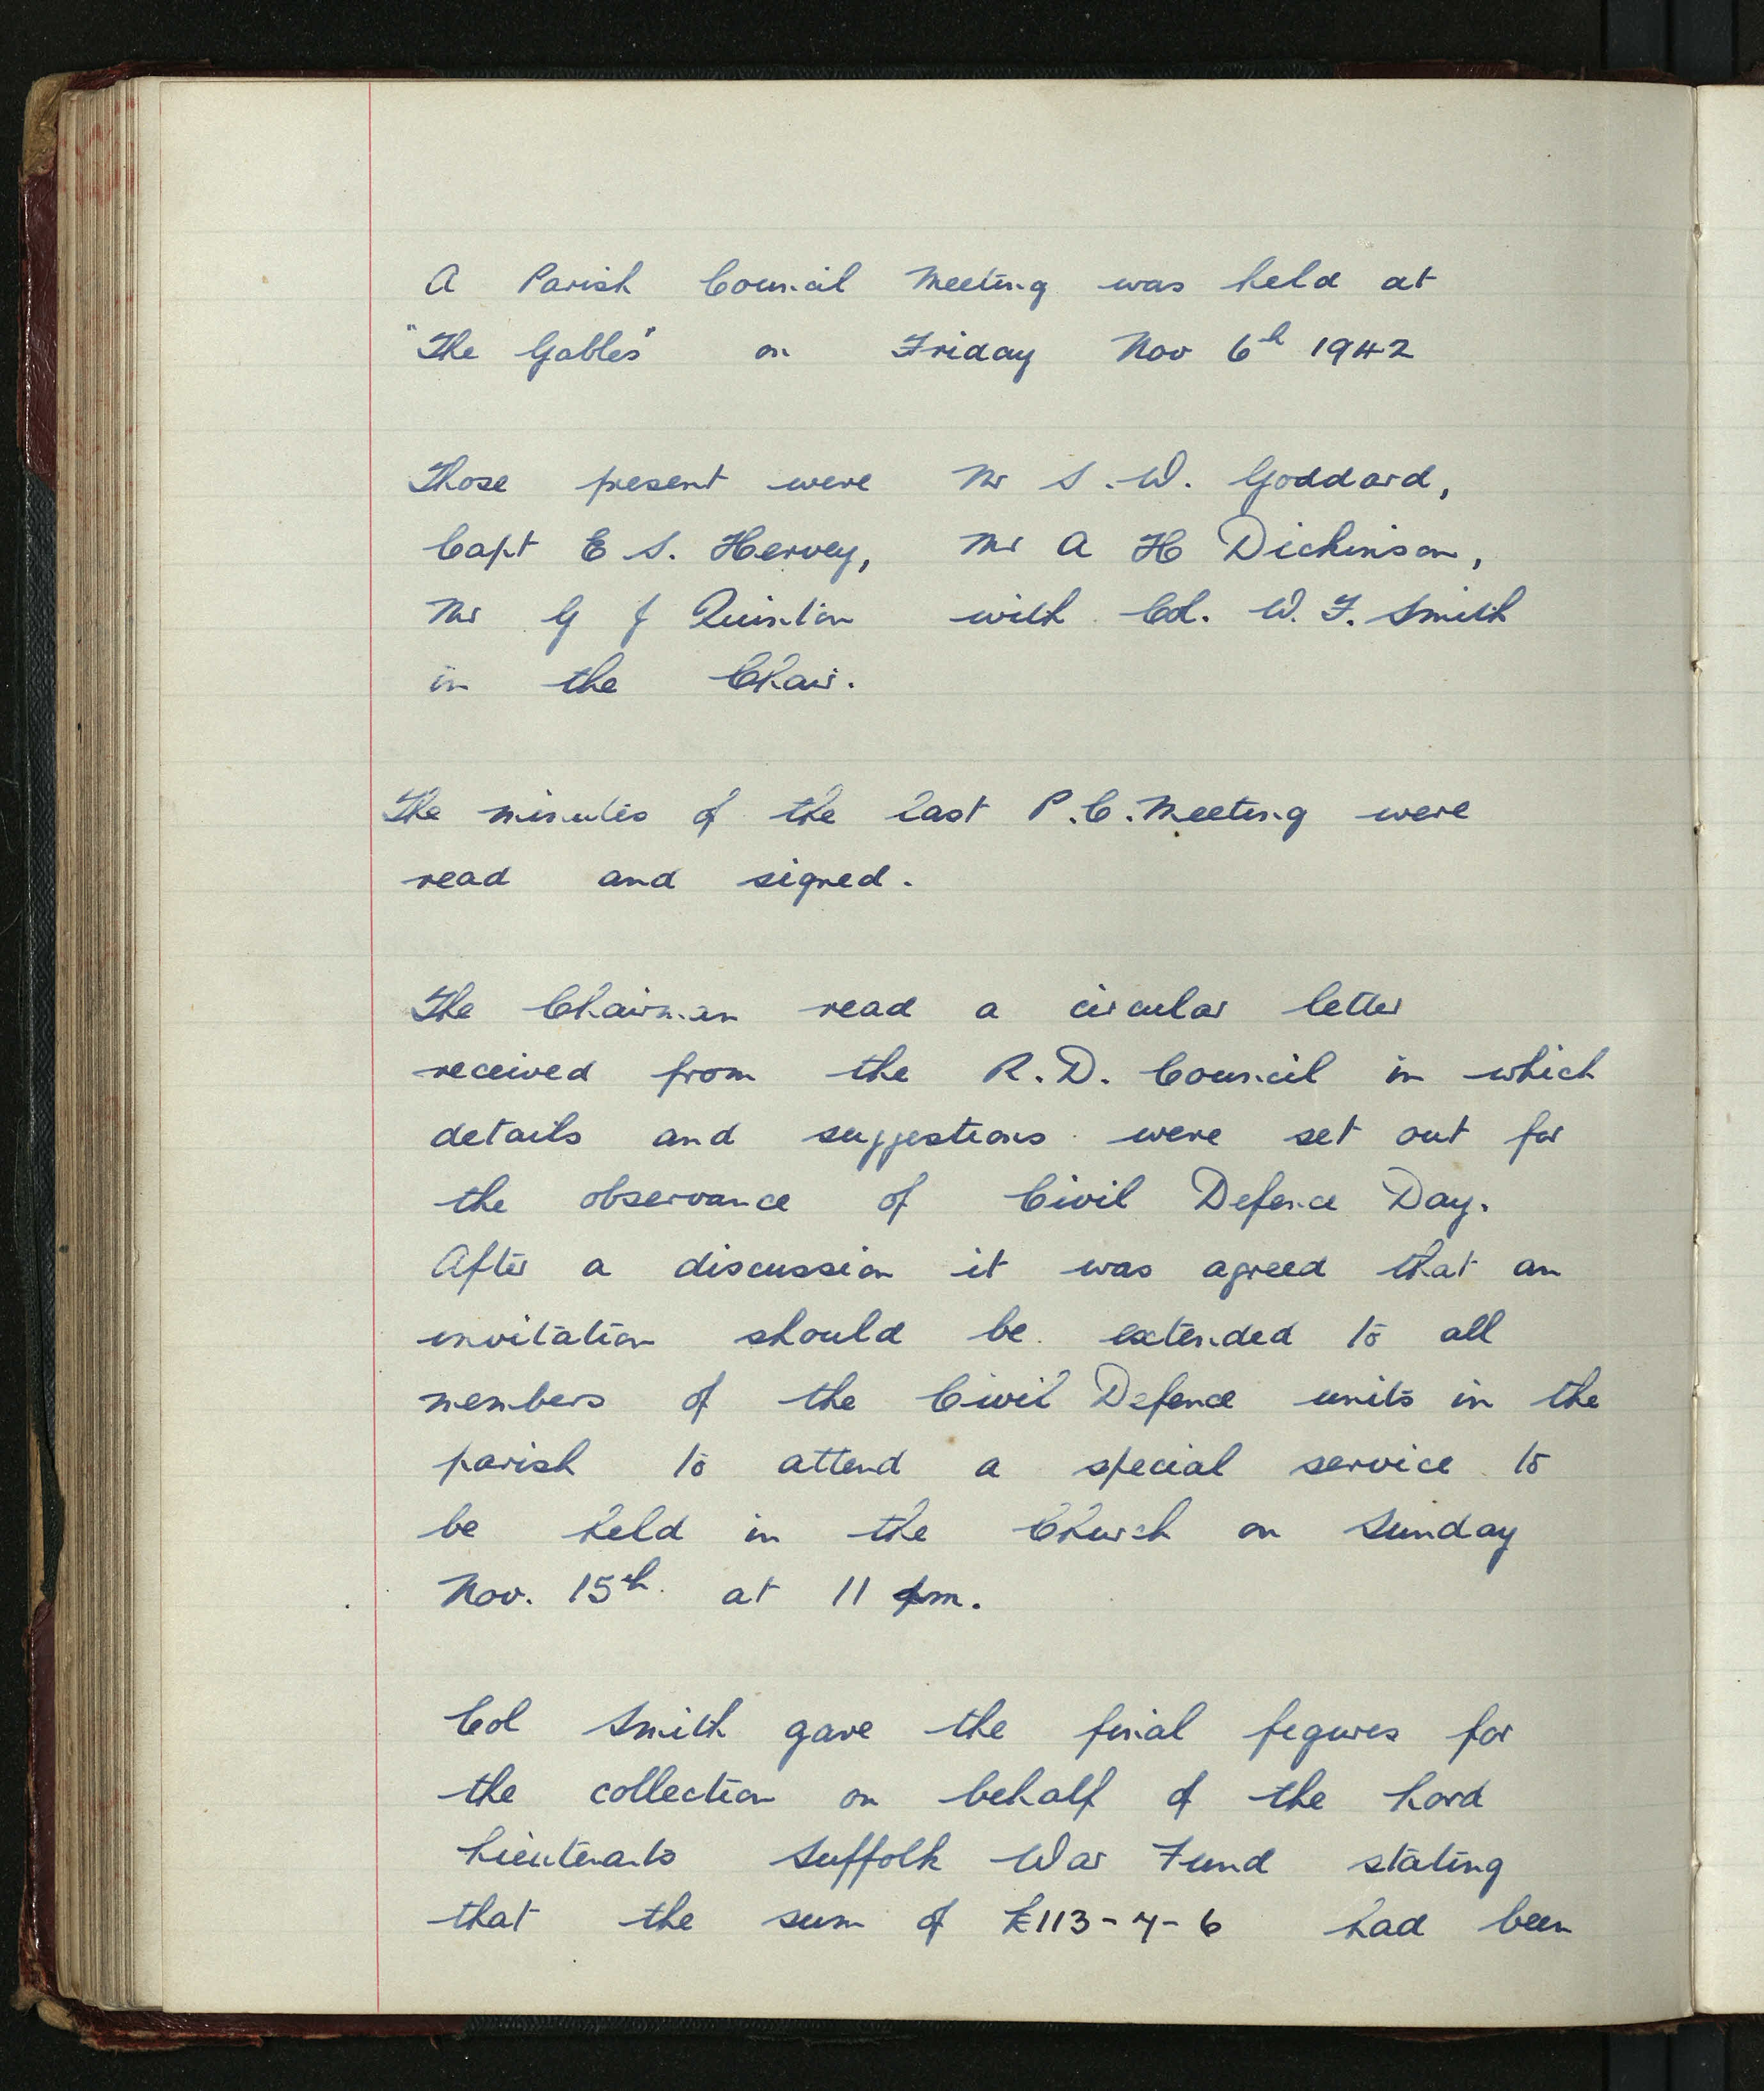 A Parish Council Meeting was held at
"The Gables" on Friday Nov 6th 1942
Those present were Mr S. W. Goddard,
Capt E S. Hervey, Mr A H Dickinson,
Mr G J Quinton with Col. W. F. Smith
in the Chair.
The minutes of the last P.C. Meeting were
read and signed.
The Chairman read a circular letter
received from the R.D. Council in which
details and suggestions were set out for
the observance of Civil Defence Day.
After a discussion it was agreed that an
invitation should be extended to all
members of the Civil Defence units in the
parish to attend a special service to
be held in the Church on Sunday
Nov. 15th. at 11 pm.
Col Smith gave the final figures for
the collection on behalf of the Lord
Lieutenants Suffolk War Fund stating
that the sum of £113-7-6 had been